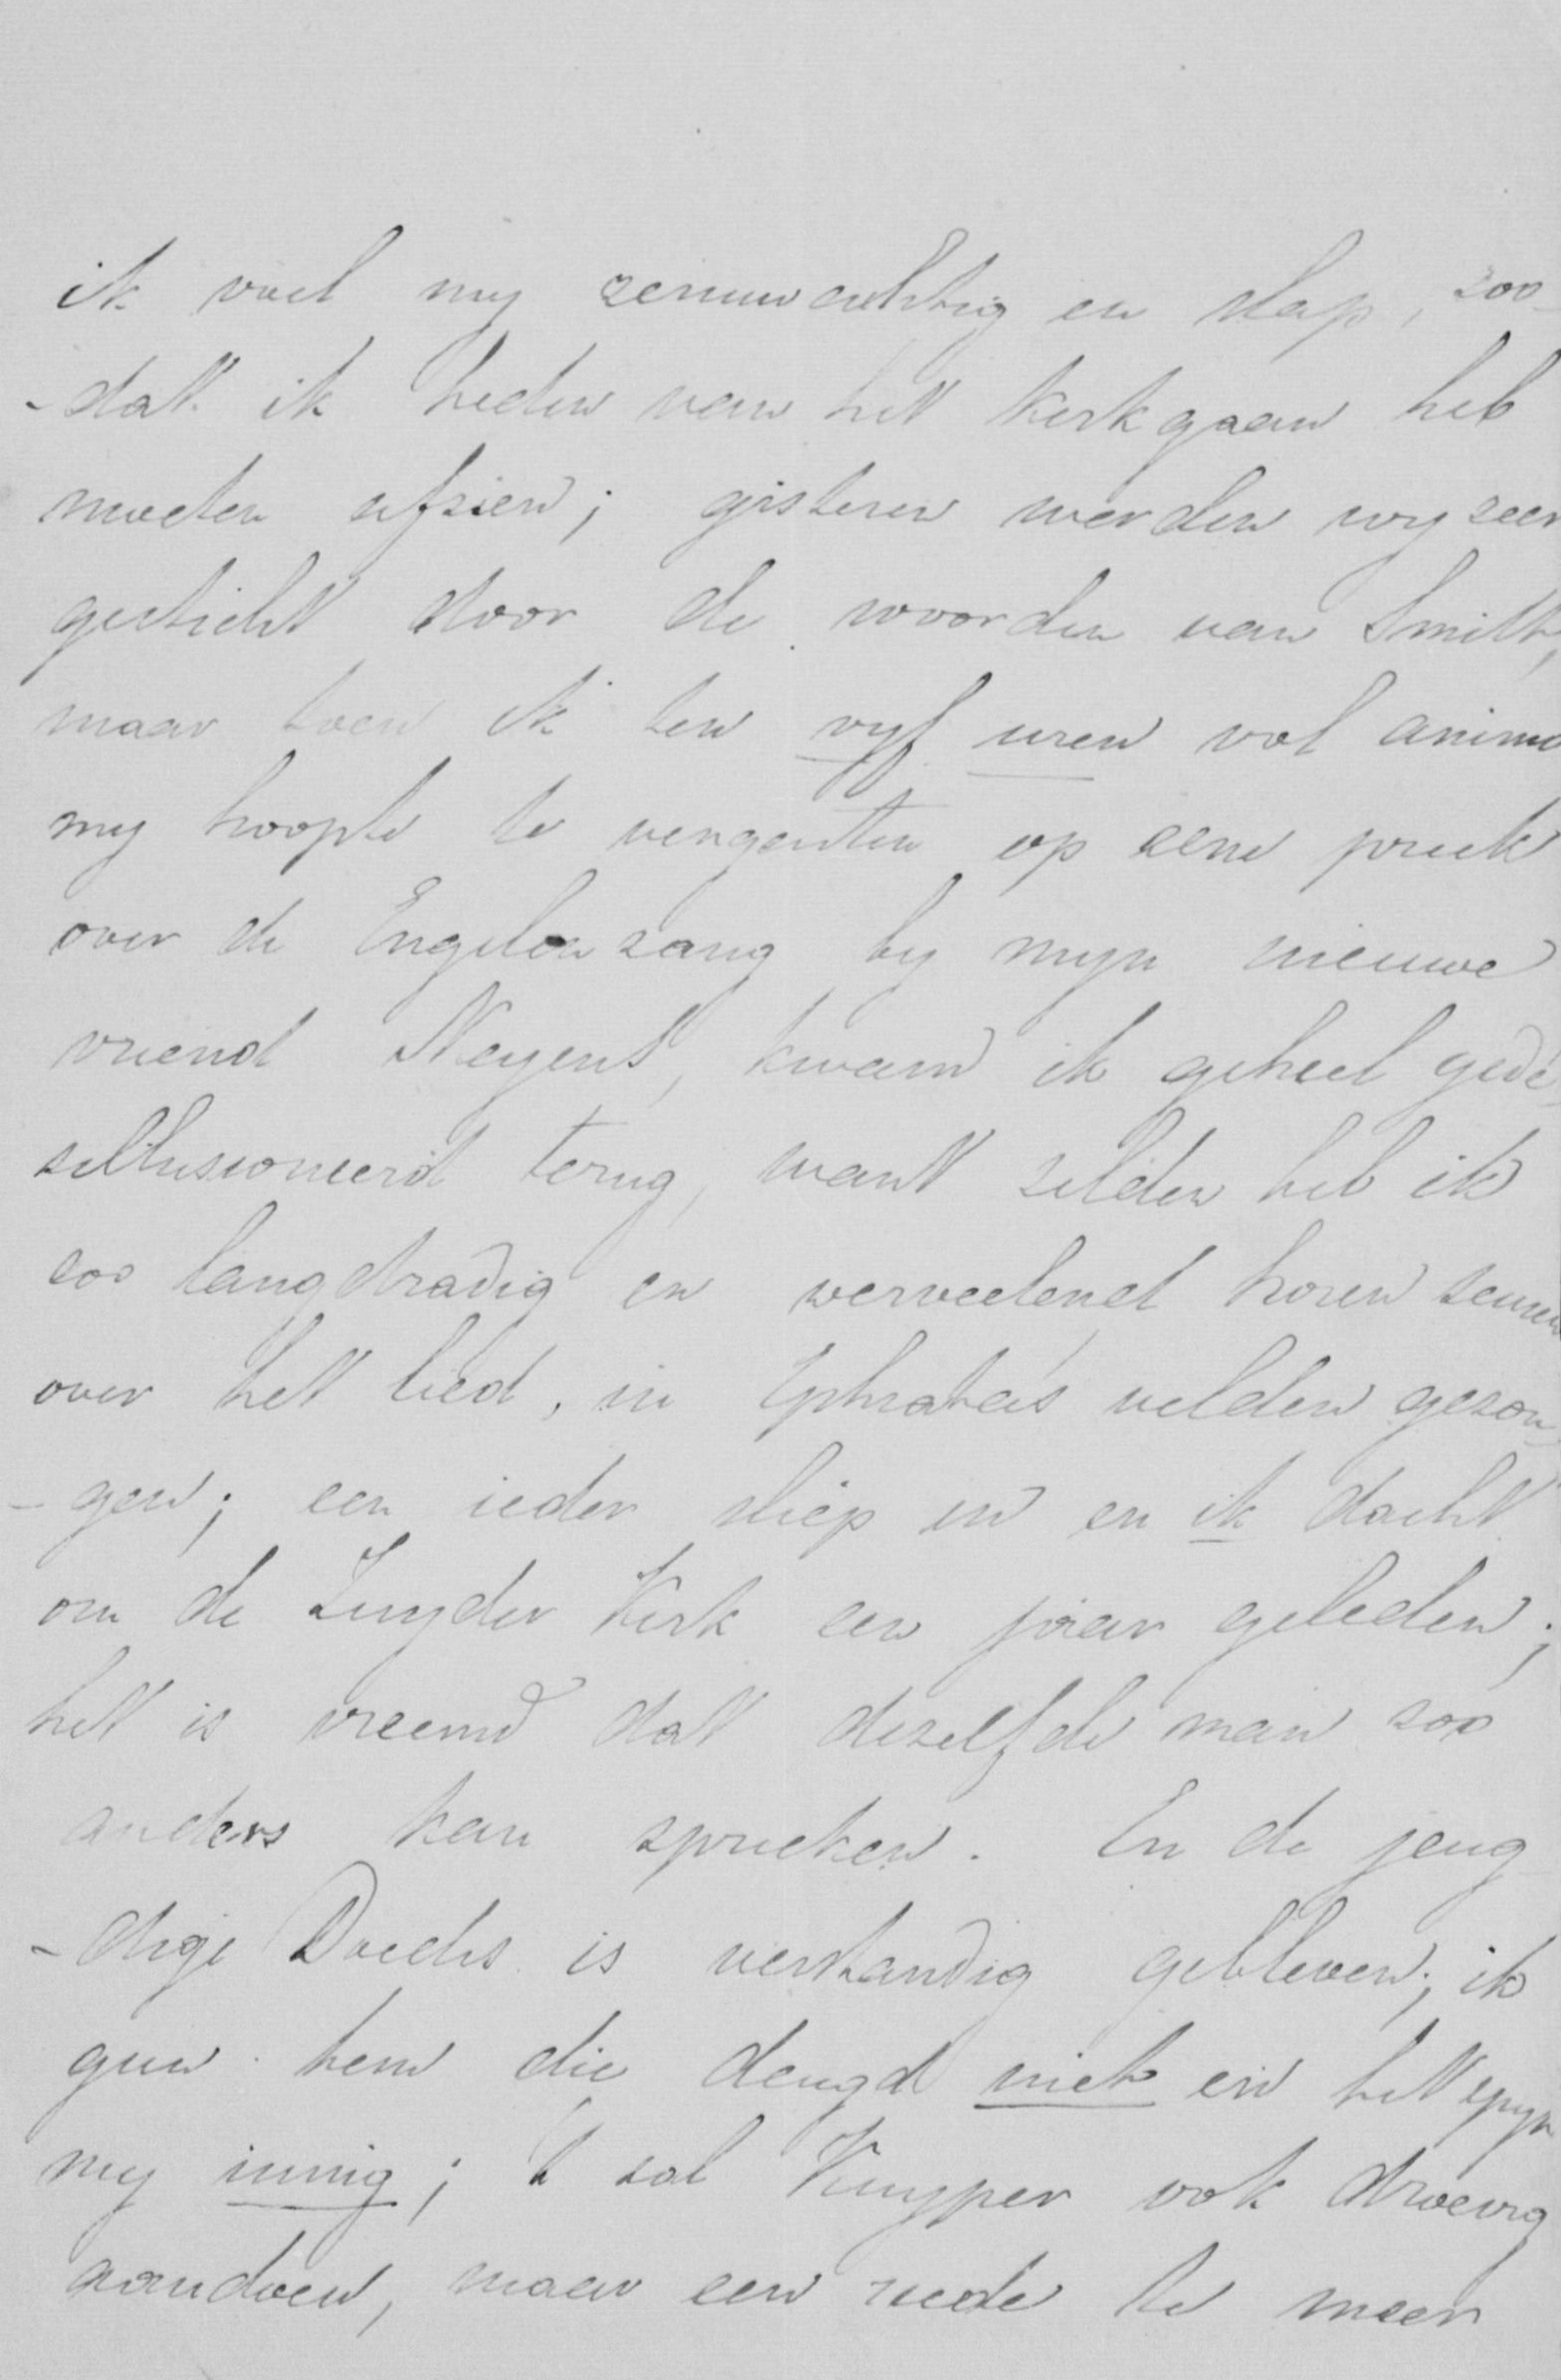 ik voel my zenuwachtig en slap, zoo
-dat ik heden van het kerkgaan heb
moeten afzien; gisteren werden wy zeer
gesticht door de woorden van Smitt,
maar toen ik ten vyf uren vol animo
my hoopte te vergasten op eene preek
over de Engelenzang by myn nieuwe
vriend Neyens, kwam ik geheel gedé-
sillusioneerd terug, want zelden heb ik
zoo langdradig en verveelend horen
over het lied, in Ephrata's velden gezon-
-gen; een ieder sliep in en ik dacht
om de Zuyder Kerk een jaar geleden;
het is vreemd dat dezelfde man zoo
anders kan spreeken. En de jeug
-dige Doedes is verstandig gebleven; ik
gun hem die deugd niet en het spyt
my innig; 't zal Kuyper ook droevig
aandoen, maar een rede te meer